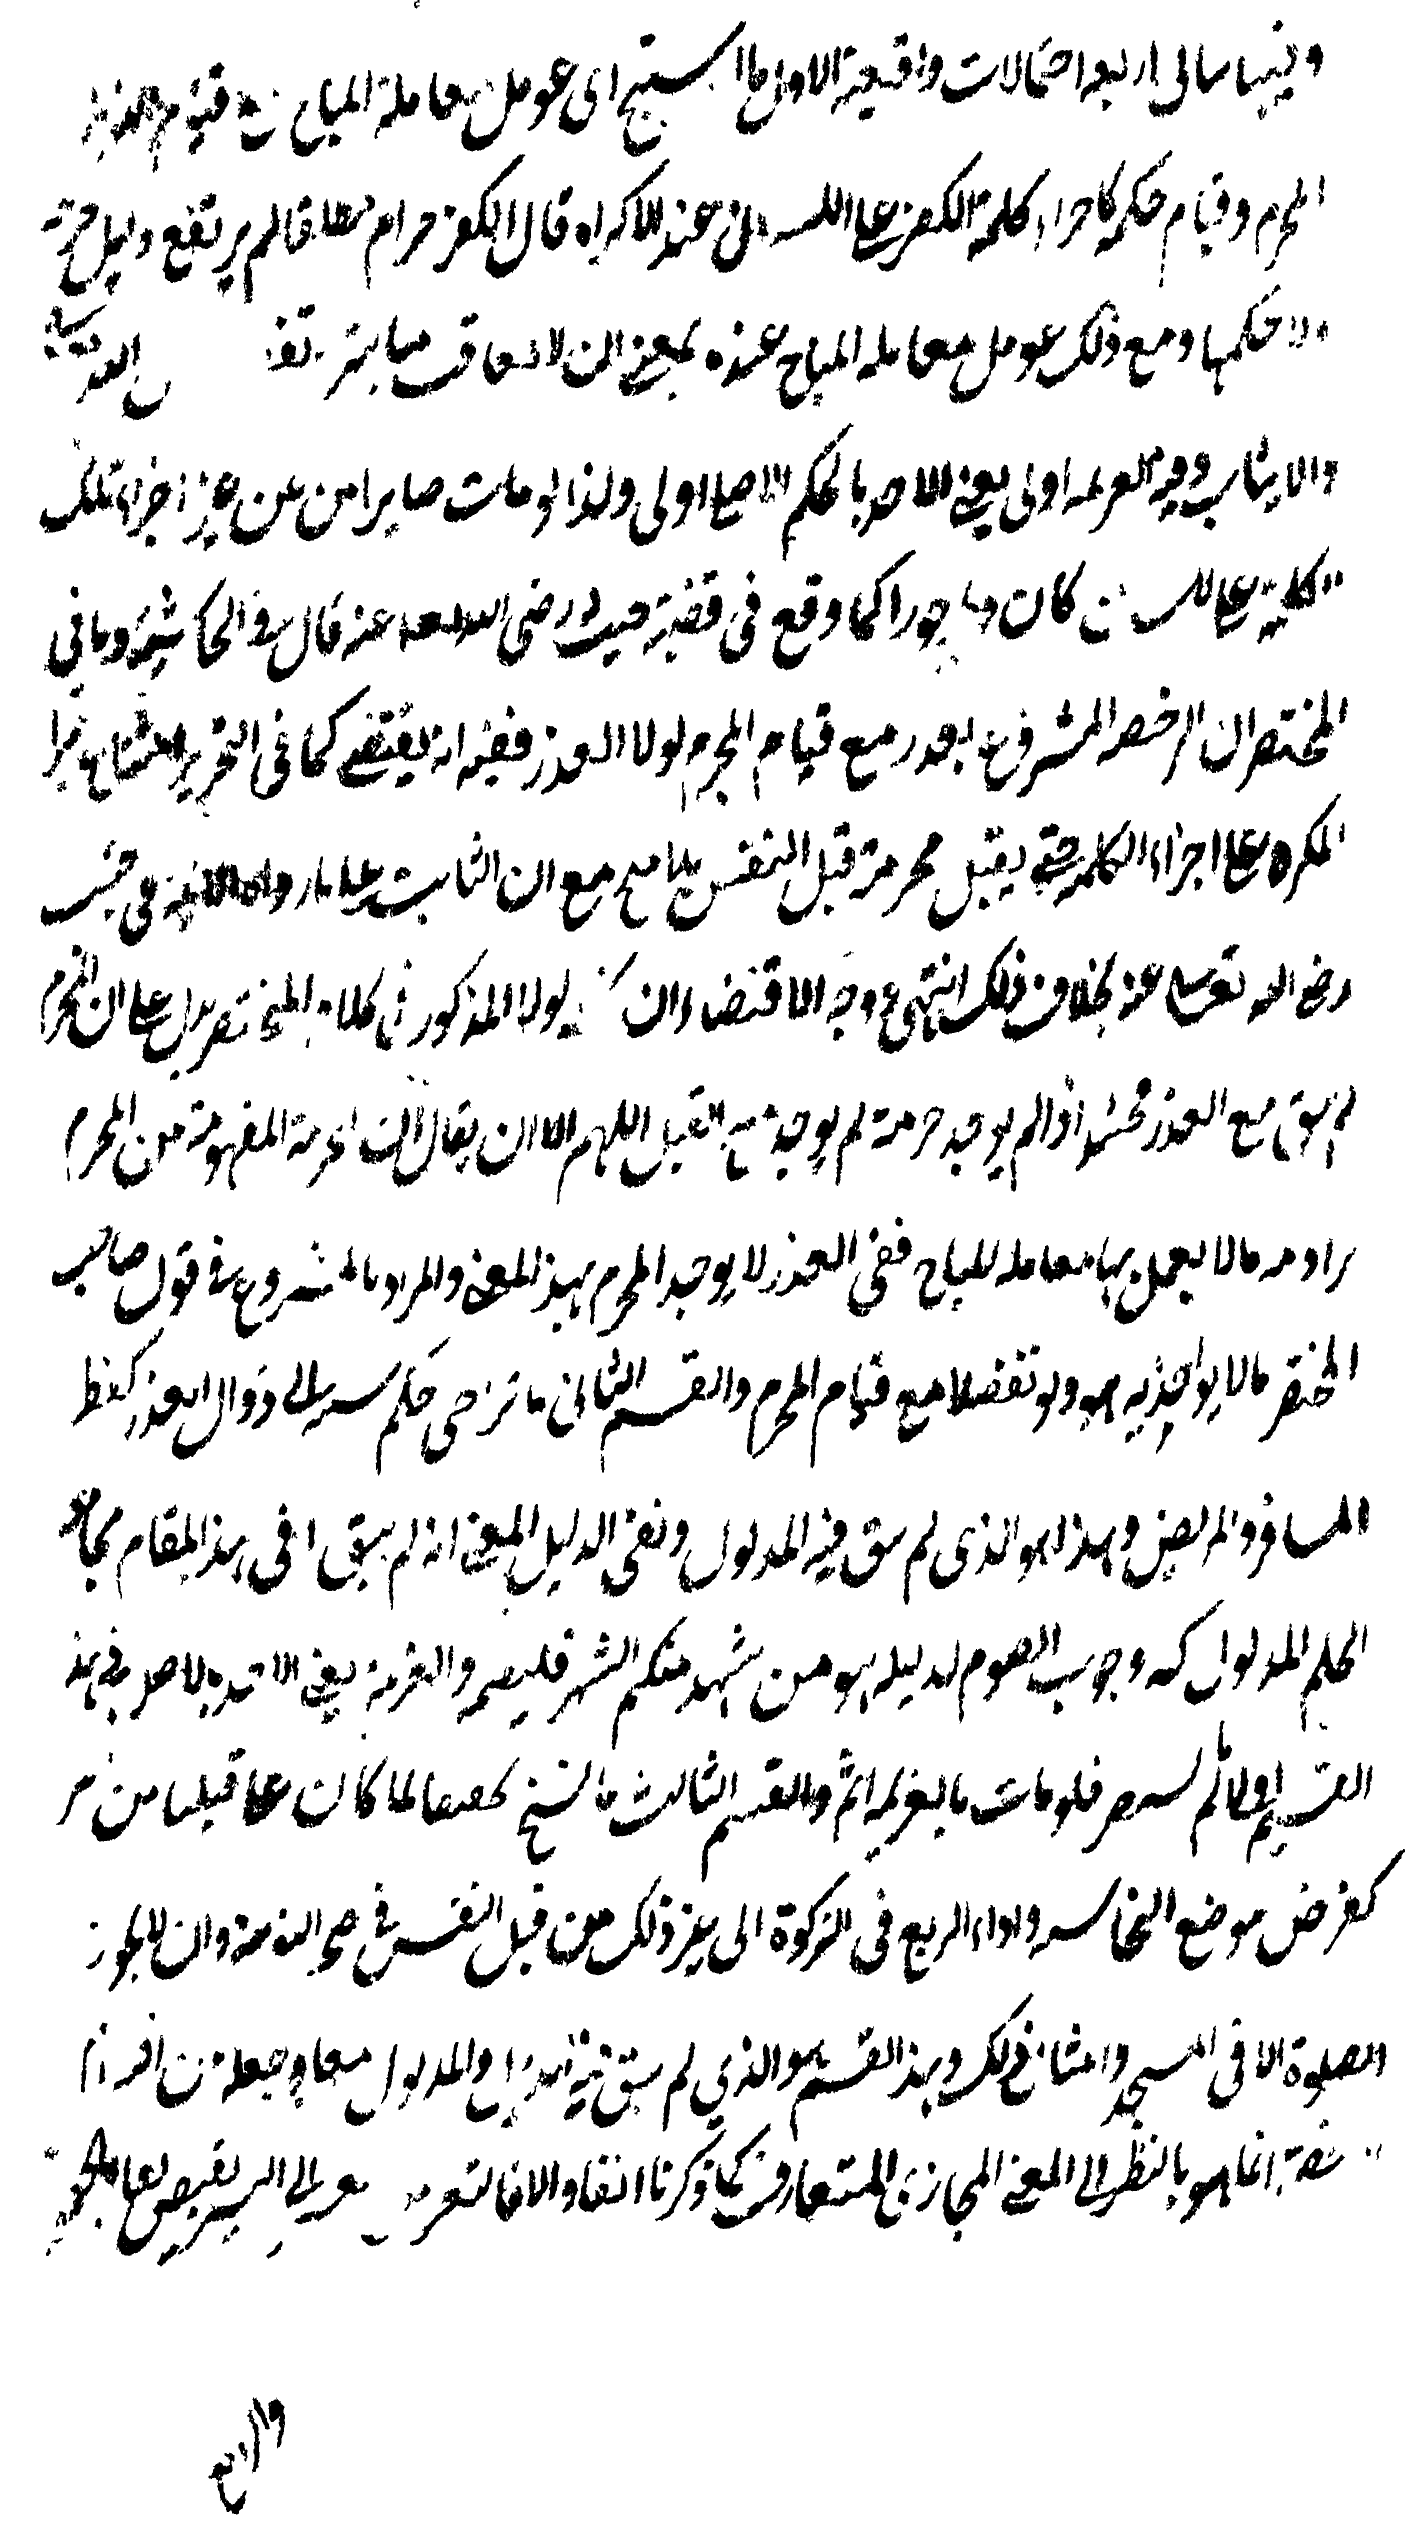 اربعة احتمالات واقيعة الاول ما استبيح اى عومل معاملة المباح مع قيام
المحرم وقيام حكمه كاجراء كلمة الكفر على اللسان عند الاكراه فان الكفر حرام مطلقا لم يرتفع دليل حرمته
ولا حكمها ومع ذلك عومل معاملة المباح عنده بمعنى ان لا يعاقب مباشرته
والا يثاب وفيه العزيمة اولى يعنى الاخذ بالحكم الاصلى اولى ولذا لو مات صابرا من غير اجراء تلك
الكلمة على اللسان كان ماجورا كما وقع فى قضية خبيب رضى الله تعالى عنه قال فى الحاشية وما فى
المختصر ان الرخصة المشروع لعذر مع قيام المحرم لولا العذر ففيه انه يقتضى كما فى التحرير امتناع صبر
المكره على اجراء الكلمة حتى يقتل محرمة قتل النفس بلا مبيح مع ان الثابت على ما رواه الائمة فى خبيب
رضى الله تعالى عنه بخلاف ذلك انتهى ووجه الاقتضاء ان لولا المذكور فى كلام المختصر يدل على ان المحرم
لم يبق مع العذر محرما اذا لم يوجد حرمة لم يوجد القتل اللهم الا ان يقال ان الحرمة المفهومة من المحرم
يراد منه ما لا يعمل بها معاملة المباح ففى العذر لا يوجد المحرم بهذا المعنى والمراد بالمشروع فى قول صاحب
المختصر ما لا يواخذ به هو ولو تفضلا مع قيام المحرم والقسم الثانى ما تراخى حكم سببه الى زوال العذر كفطر
المسافر والمريض وهذا هو الذى لم يبق فيه المدلول ونفى الدليل المعنى انه لم يبق فى هذا المقام
الحكم المدلول كه وجوب الصوم لدليله هو من شهد منكم الشهر فليصمه والعزيمة يعنى الاخذ بالاصل فى هذا
القسم اولى ما لم يستضر فلو مات بالعزيمة اثم والقسم الثالث ما نسخ تخفيفا لما كان على قبلنا من
كقرض موضع النجاسة واداء الربع فى الزكوة الى غير ذلك من قتل النفس فى صحة التوبة وان لا يجوز
الصلوة الا فى المسجد وامثال ذلك وهذا القسم هو الذى لم يبق فيه الدليل والمدلول معا وجعله من افراد
الرخصة انما هو بالنظر الى المعنى المجازى المتعارف كما ذكرنا انفا والا فالتعريف
والرابع